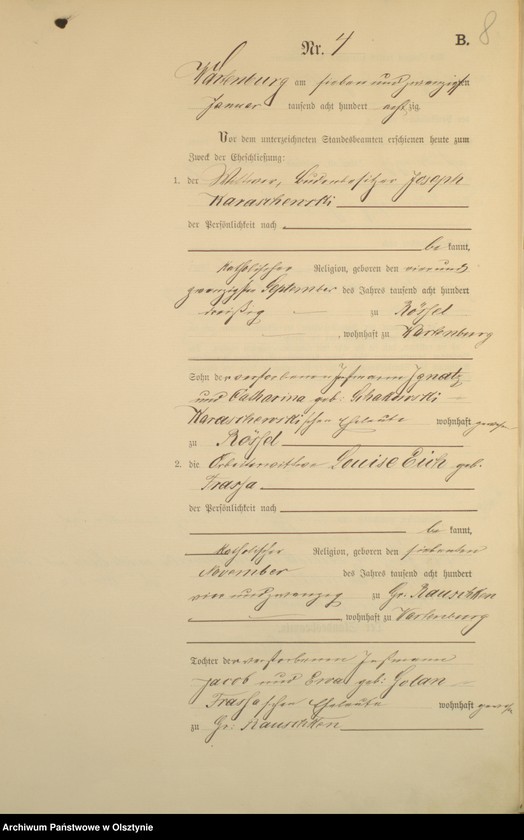 B. 8
Nr. 4
Wartenburg am sieben und zwanzigsten
Januar tausend acht hundert achtzig.
Vor dem unterzeichneten Standesbeamten erschienen heute zum
Zweck der Eheschließung:
1. der Wittwer, Büdenbesitzer Joseph
Karaschewski
der Persönlichkeit nach
be kannt,
katholischer Religion, geboren den vier und
zwanzigsten September des Jahres tausend acht hundert
dreißig zu Rössel
, wohnhaft zu Wartenburg
Sohn der verstorbenen Ignatz
und Catharina geb:
Karaschewski'schen Eheleute wohnhaft gewesen
zu Rössel
2. die Arbeiterwittwe Louise Eich geb.
Trassa
der Persönlichkeit nach
be kannt,
katholischer Religion, geboren den siebenten
November des Jahres tausend acht hundert
vier und zwanzig zu Gr. Rauschken
wohnhaft zu Wartenburg
Tochter der verstorbenen
Jacob und Ewa geb: Golan
Trassa'schen Eheleute wohnhaft gewesen
zu Gr: Rauschken
Archiwum Państwowe w Olsztynie